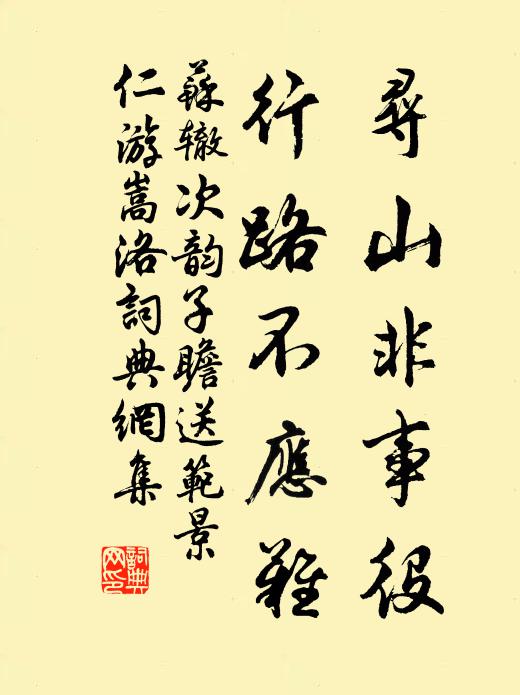 尋山非事役
行路不應難
蘇辙次韵子瞻送範景
仁游嵩洛詞典網集
詞典
网印